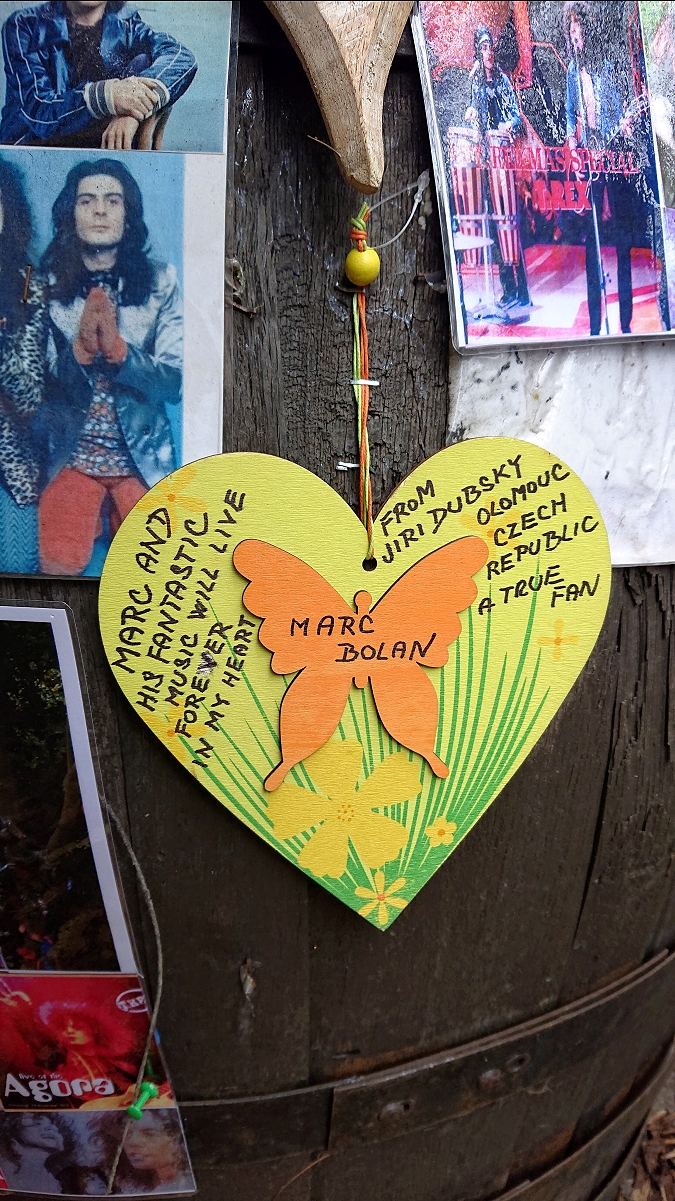 MARC AND
HIS FANTASTIC
MUSIC WILL LIVE
FOREVER
IN MY HEART
FROM
JIRI DUBSKY
OLOMOUC
CZECH
REPUBLIC
A TRUE
FAN
MARC
BOLAN
SPECIAL
T.REX
live at the
Agora